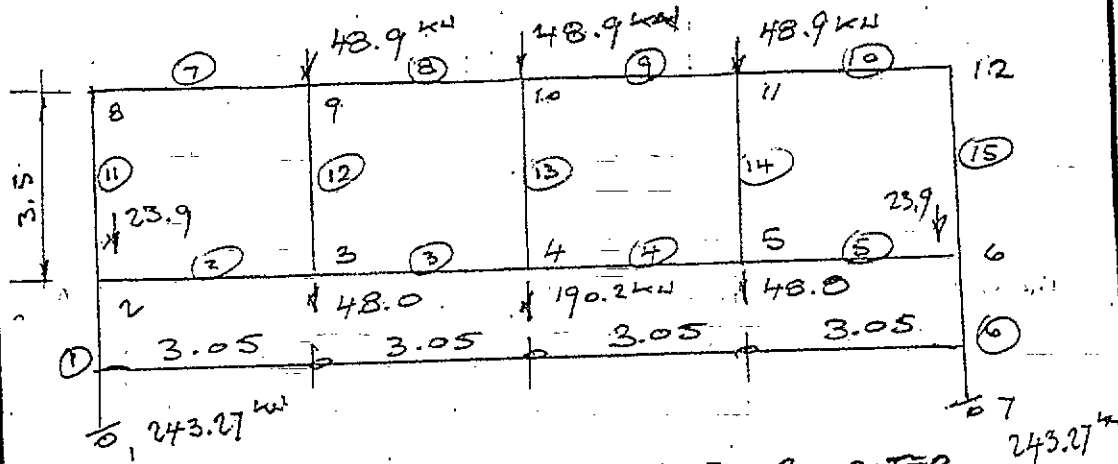 48.9 kN 48.9 kN 48.9 kN
7 8 9 10
8 9 10 11 12
3.5
11 12 13 14 15
23.9 23.9
2 3 3 4 4 5 5 6
2 48.0 190.2 kN 48.0
1 3.05 3.05 3.05 3.05 6
1 243.27 kN 7
243.27